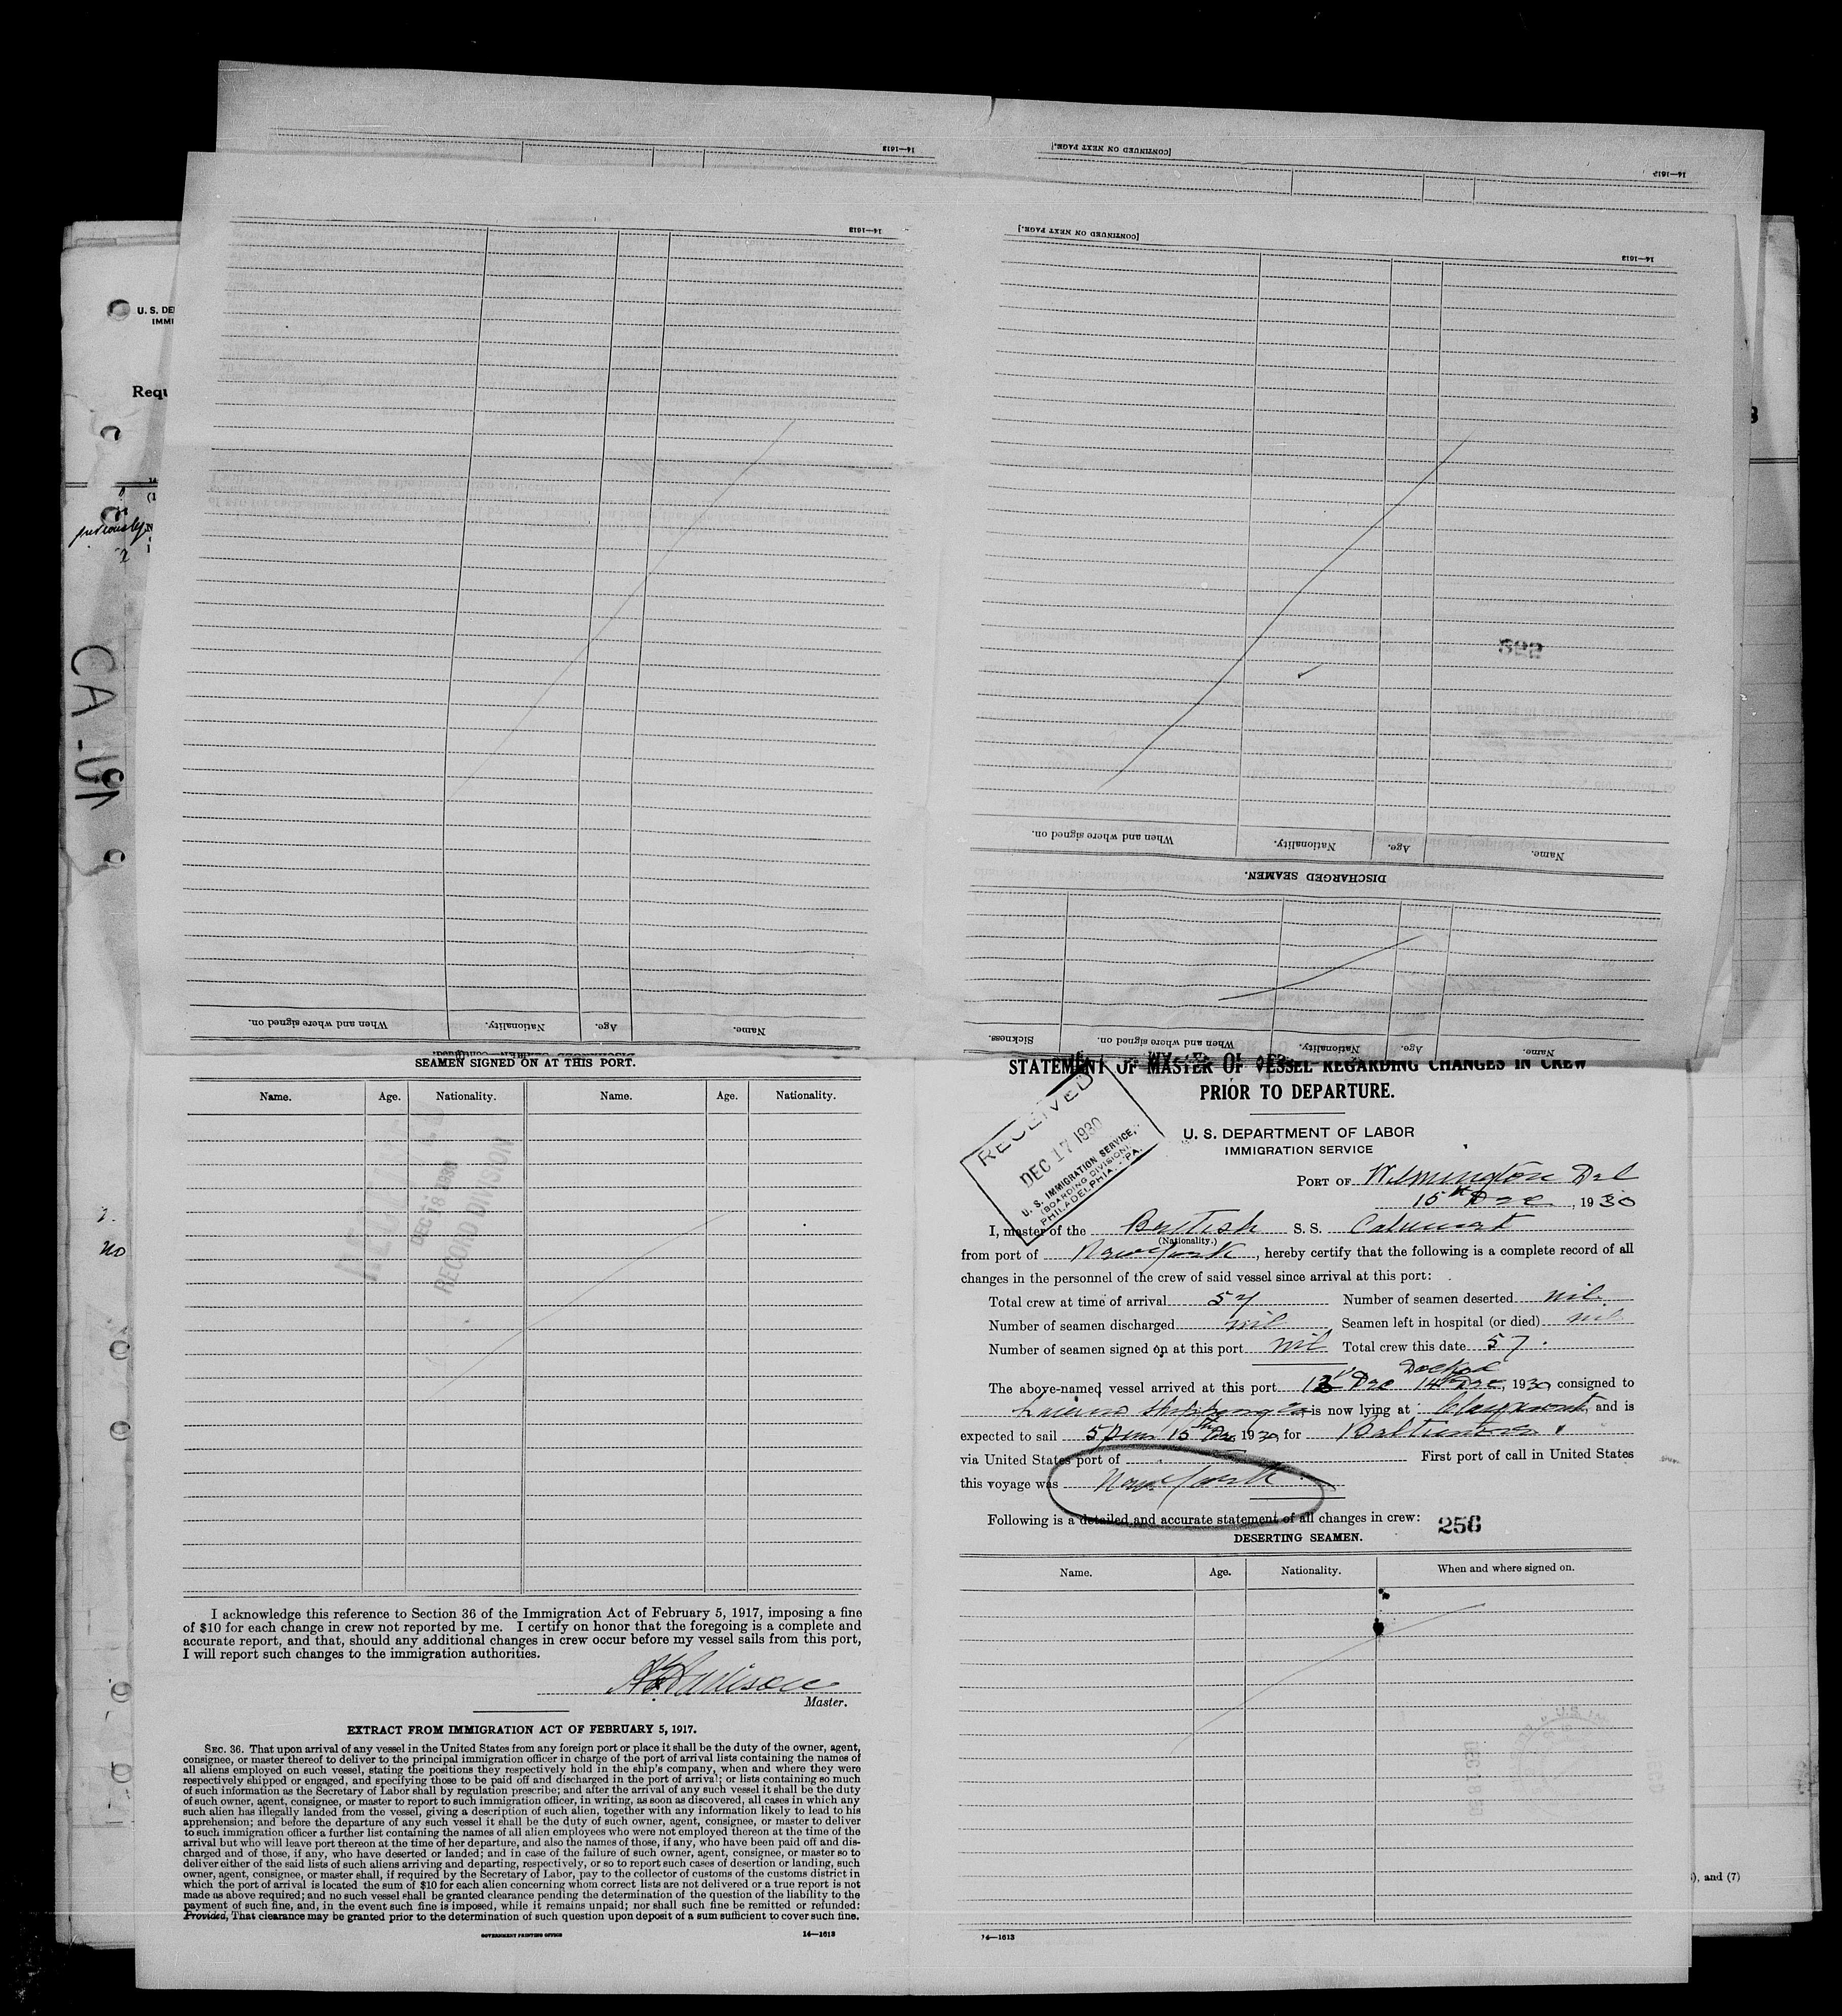 14—1613
[CONTINUED ON NEXT PAGE.]
14—1613
14—1613
[CONTINUED ON NEXT PAGE.]
14—1613
U. S. DE
IMMI
Requ
previously
CA-UN
no
522
When and where signed on.
Nationality.
Age.
Name.
DISCHARGED SEAMEN.
When and where signed on.
Nationality.
Age.
Name.
Sickness.
When and where signed on.
Nationality.
Age.
Name.
DISCHARGED SEAMEN—Continued.
SEAMEN SIGNED ON AT THIS PORT.
Name. Age. Nationality. Name. Age. Nationality.
DEC 18 1930
RECORD DIVISION
I acknowledge this reference to Section 36 of the Immigration Act of February 5, 1917, imposing a fine
of $10 for each change in crew not reported by me. I certify on honor that the foregoing is a complete and
accurate report, and that, should any additional changes in crew occur before my vessel sails from this port,
I will report such changes to the immigration authorities.
Master.
EXTRACT FROM IMMIGRATION ACT OF FEBRUARY 5, 1917.
SEC. 36. That upon arrival of any vessel in the United States from any foreign port or place it shall be the duty of the owner, agent,
consignee, or master thereof to deliver to the principal immigration officer in charge of the port of arrival lists containing the names of
all aliens employed on such vessel, stating the positions they respectively hold in the ship's company, when and where they were
respectively shipped or engaged, and specifying those to be paid off and discharged in the port of arrival; or lists containing so much
of such information as the Secretary of Labor shall by regulation prescribe; and after the arrival of any such vessel it shall be the duty
of such owner, agent, consignee, or master to report to such immigration officer, in writing, as soon as discovered, all cases in which any
such alien has illegally landed from the vessel, giving a description of such alien, together with any information likely to lead to his
apprehension; and before the departure of any such vessel it shall be the duty of such owner, agent, consignee, or master to deliver
to such immigration officer a further list containing the names of all alien employees who were not employed thereon at the time of the
arrival but who will leave port thereon at the time of her departure, and also the names of those, if any, who have been paid off and dis-
charged and of those, if any, who have deserted or landed; and in case of the failure of such owner, agent, consignee, or master so to
deliver either of the said lists of such aliens arriving and departing, respectively, or so to report such cases of desertion or landing, such
owner, agent, consignee, or master shall, if required by the Secretary of Labor, pay to the collector of customs of the customs district in
which the port of arrival is located the sum of $10 for each alien concerning whom correct lists are not delivered or a true report is not
made as above required; and no such vessel shall be granted clearance pending the determination of the question of the liability to the
payment of such fine, and, in the event such fine is imposed, while it remains unpaid; nor shall such fine be remitted or refunded:
Provided, That clearance may be granted prior to the determination of such question upon deposit of a sum sufficient to cover such fine.
GOVERNMENT PRINTING OFFICE 14—1613
STATEMENT OF MASTER OF VESSEL REGARDING CHANGES IN CREW
PRIOR TO DEPARTURE.
RECEIVED
DEC 17 1930
U. S. IMMIGRATION SERVICE,
(BOARDING DIVISION),
PHILADELPHIA, PA.
U. S. DEPARTMENT OF LABOR
IMMIGRATION SERVICE
PORT OF Wilmington Del
15th Dec, 1930
I, master of the British S. S. Calumet
(Nationality.)
from port of New York, hereby certify that the following is a complete record of all
changes in the personnel of the crew of said vessel since arrival at this port:
Total crew at time of arrival 57 Number of seamen deserted nil.
Number of seamen discharged nil Seamen left in hospital (or died) nil
Number of seamen signed on at this port nil Total crew this date 57.
Docked
The above-named vessel arrived at this port 13 Dec 14th Dec, 1930, consigned to
is now lying at Claymont, and is
expected to sail 5 pm 15th Dec 1930, for Baltimore
via United States port of First port of call in United States
this voyage was New York
Following is a detailed and accurate statement of all changes in crew: 256
DESERTING SEAMEN.
Name. Age. Nationality. When and where signed on.
DEC 18 1930
14—1613
), and (7)